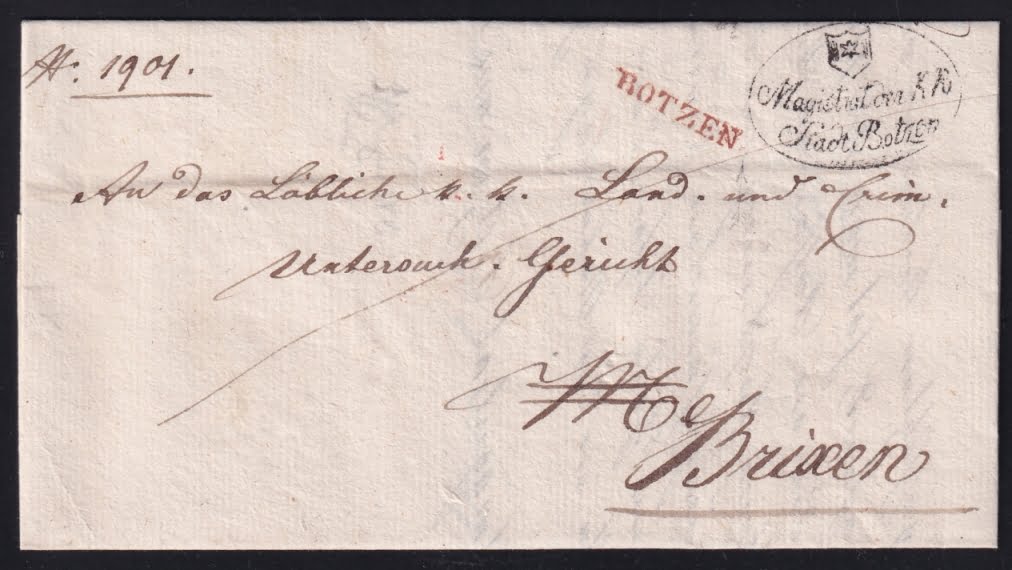 N: 1901.
BOTZEN
Magistrat der K K
Stadt Botzen
An das Löbliche k. k. Land- und Crim.
Untersuch. Gericht
M
Brixen